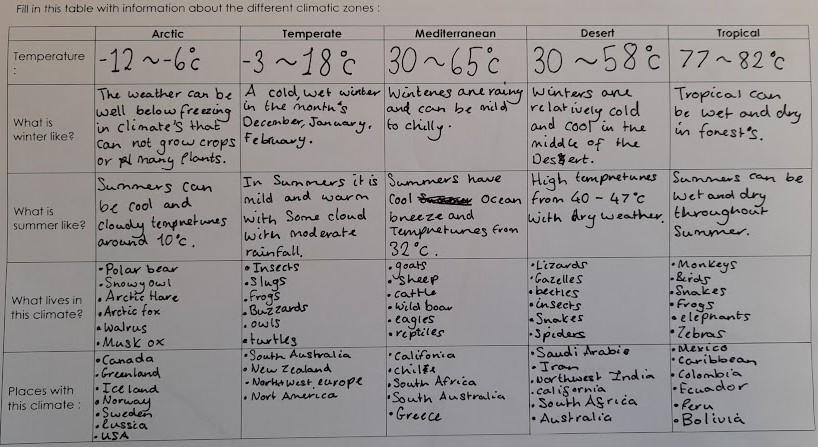 Fill in this table with information about the different climatic zones :
Arctic
Temperate
Mediterranean
Desert
Tropical
Temperature
:
-12 ~ -6°c
-3 ~ 18°c
30 ~ 65°c
30 ~ 58°c
77 ~ 82°c
What is
winter like?
The weather can be
well below freezing
in climate's that
can not grow crops
or many plants.
A cold, wet winter
in the month's
December, January,
February.
Winteres are rainy
and can be mild
to chilly.
Winters are
relatively cold
and cool in the
middle of the
Desert.
Tropical can
be wet and dry
in forest's.
What is
summer like?
Summers can
be cool and
cloudy tempretures
around 10°c.
In Summers it is
mild and warm
with Some cloud
with moderate
rainfall.
Summers have
Cool Ocean
breeze and
Tempretures from
32°c.
High tempretures
from 40 - 47°c
with dry weather.
Summers can be
wet and dry
throughout
Summer.
What lives in
this climate?
• Polar bear
• Snowy owl
• Arctic Hare
• Arctic fox
• Walrus
• Musk ox
• Insects
• Slugs
• Frogs
• Buzzards
• owls
• turtles
• goats
• Sheep
• cattle
• Wild boar
• eagles
• reptiles
• Lizards
• Gazelles
• beetles
• insects
• Snakes
• Spiders
• Monkeys
• Birds
• Snakes
• Frogs
• elephants
• Zebras
Places with
this climate :
• Canada
• Greenland
• Iceland
• Norway
• Sweden
• Russia
• USA
• South Australia
• New Zealand
• Northwest europe
• Nort America
• Califonia
• chile
• South Africa
• South Australia
• Greece
• Saudi Arabia
• Iran
• Northwest India
• california
• South Africa
• Australia
• Mexico
• Caribbean
• Colombia
• Ecuador
• Peru
• Bolivia